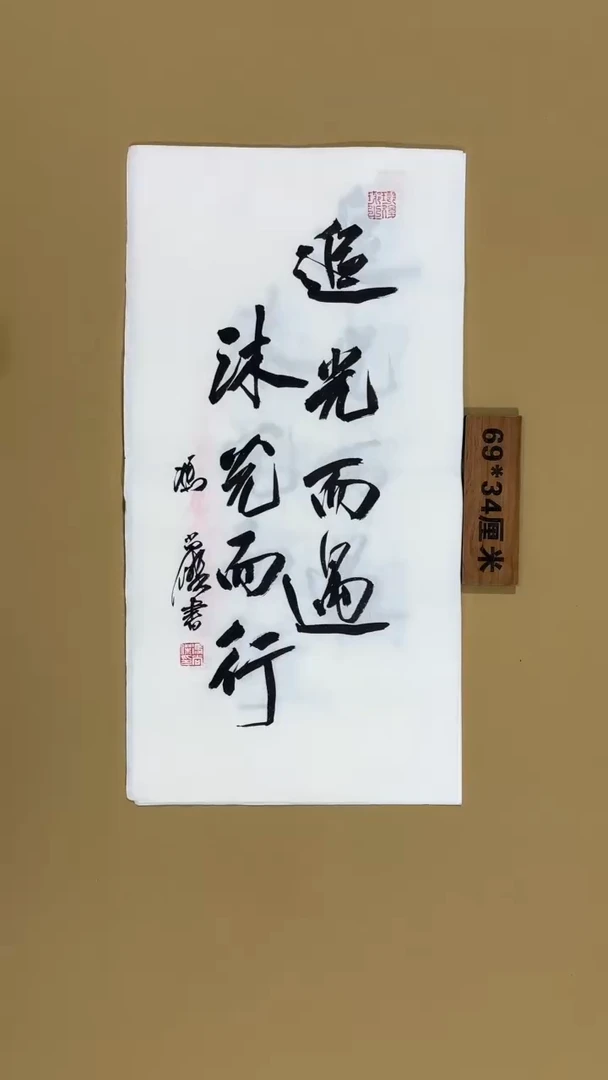 追光而遇
沐光而行
书
69*34厘米